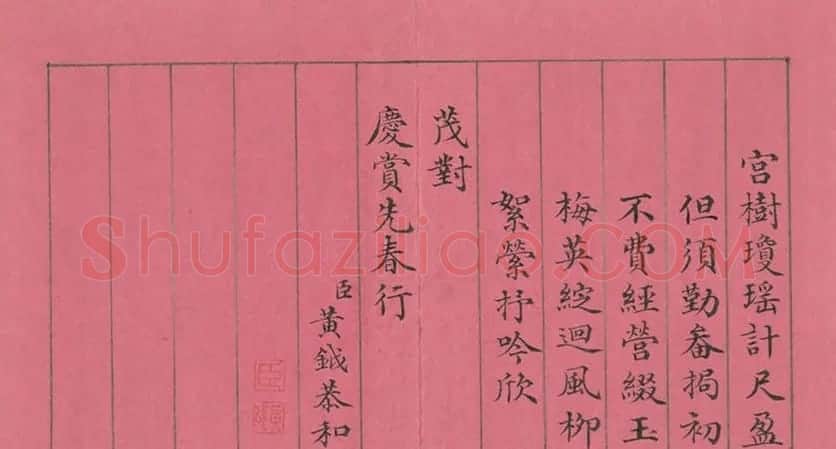 宮樹瓊瑤計尺盈
但須勤畚挶初
不費經營綴玉
梅英綻迴風柳
絮縈抒吟欣
茂對
慶賞先春行
臣黃鉞恭和
臣
Shufaziliao.COM